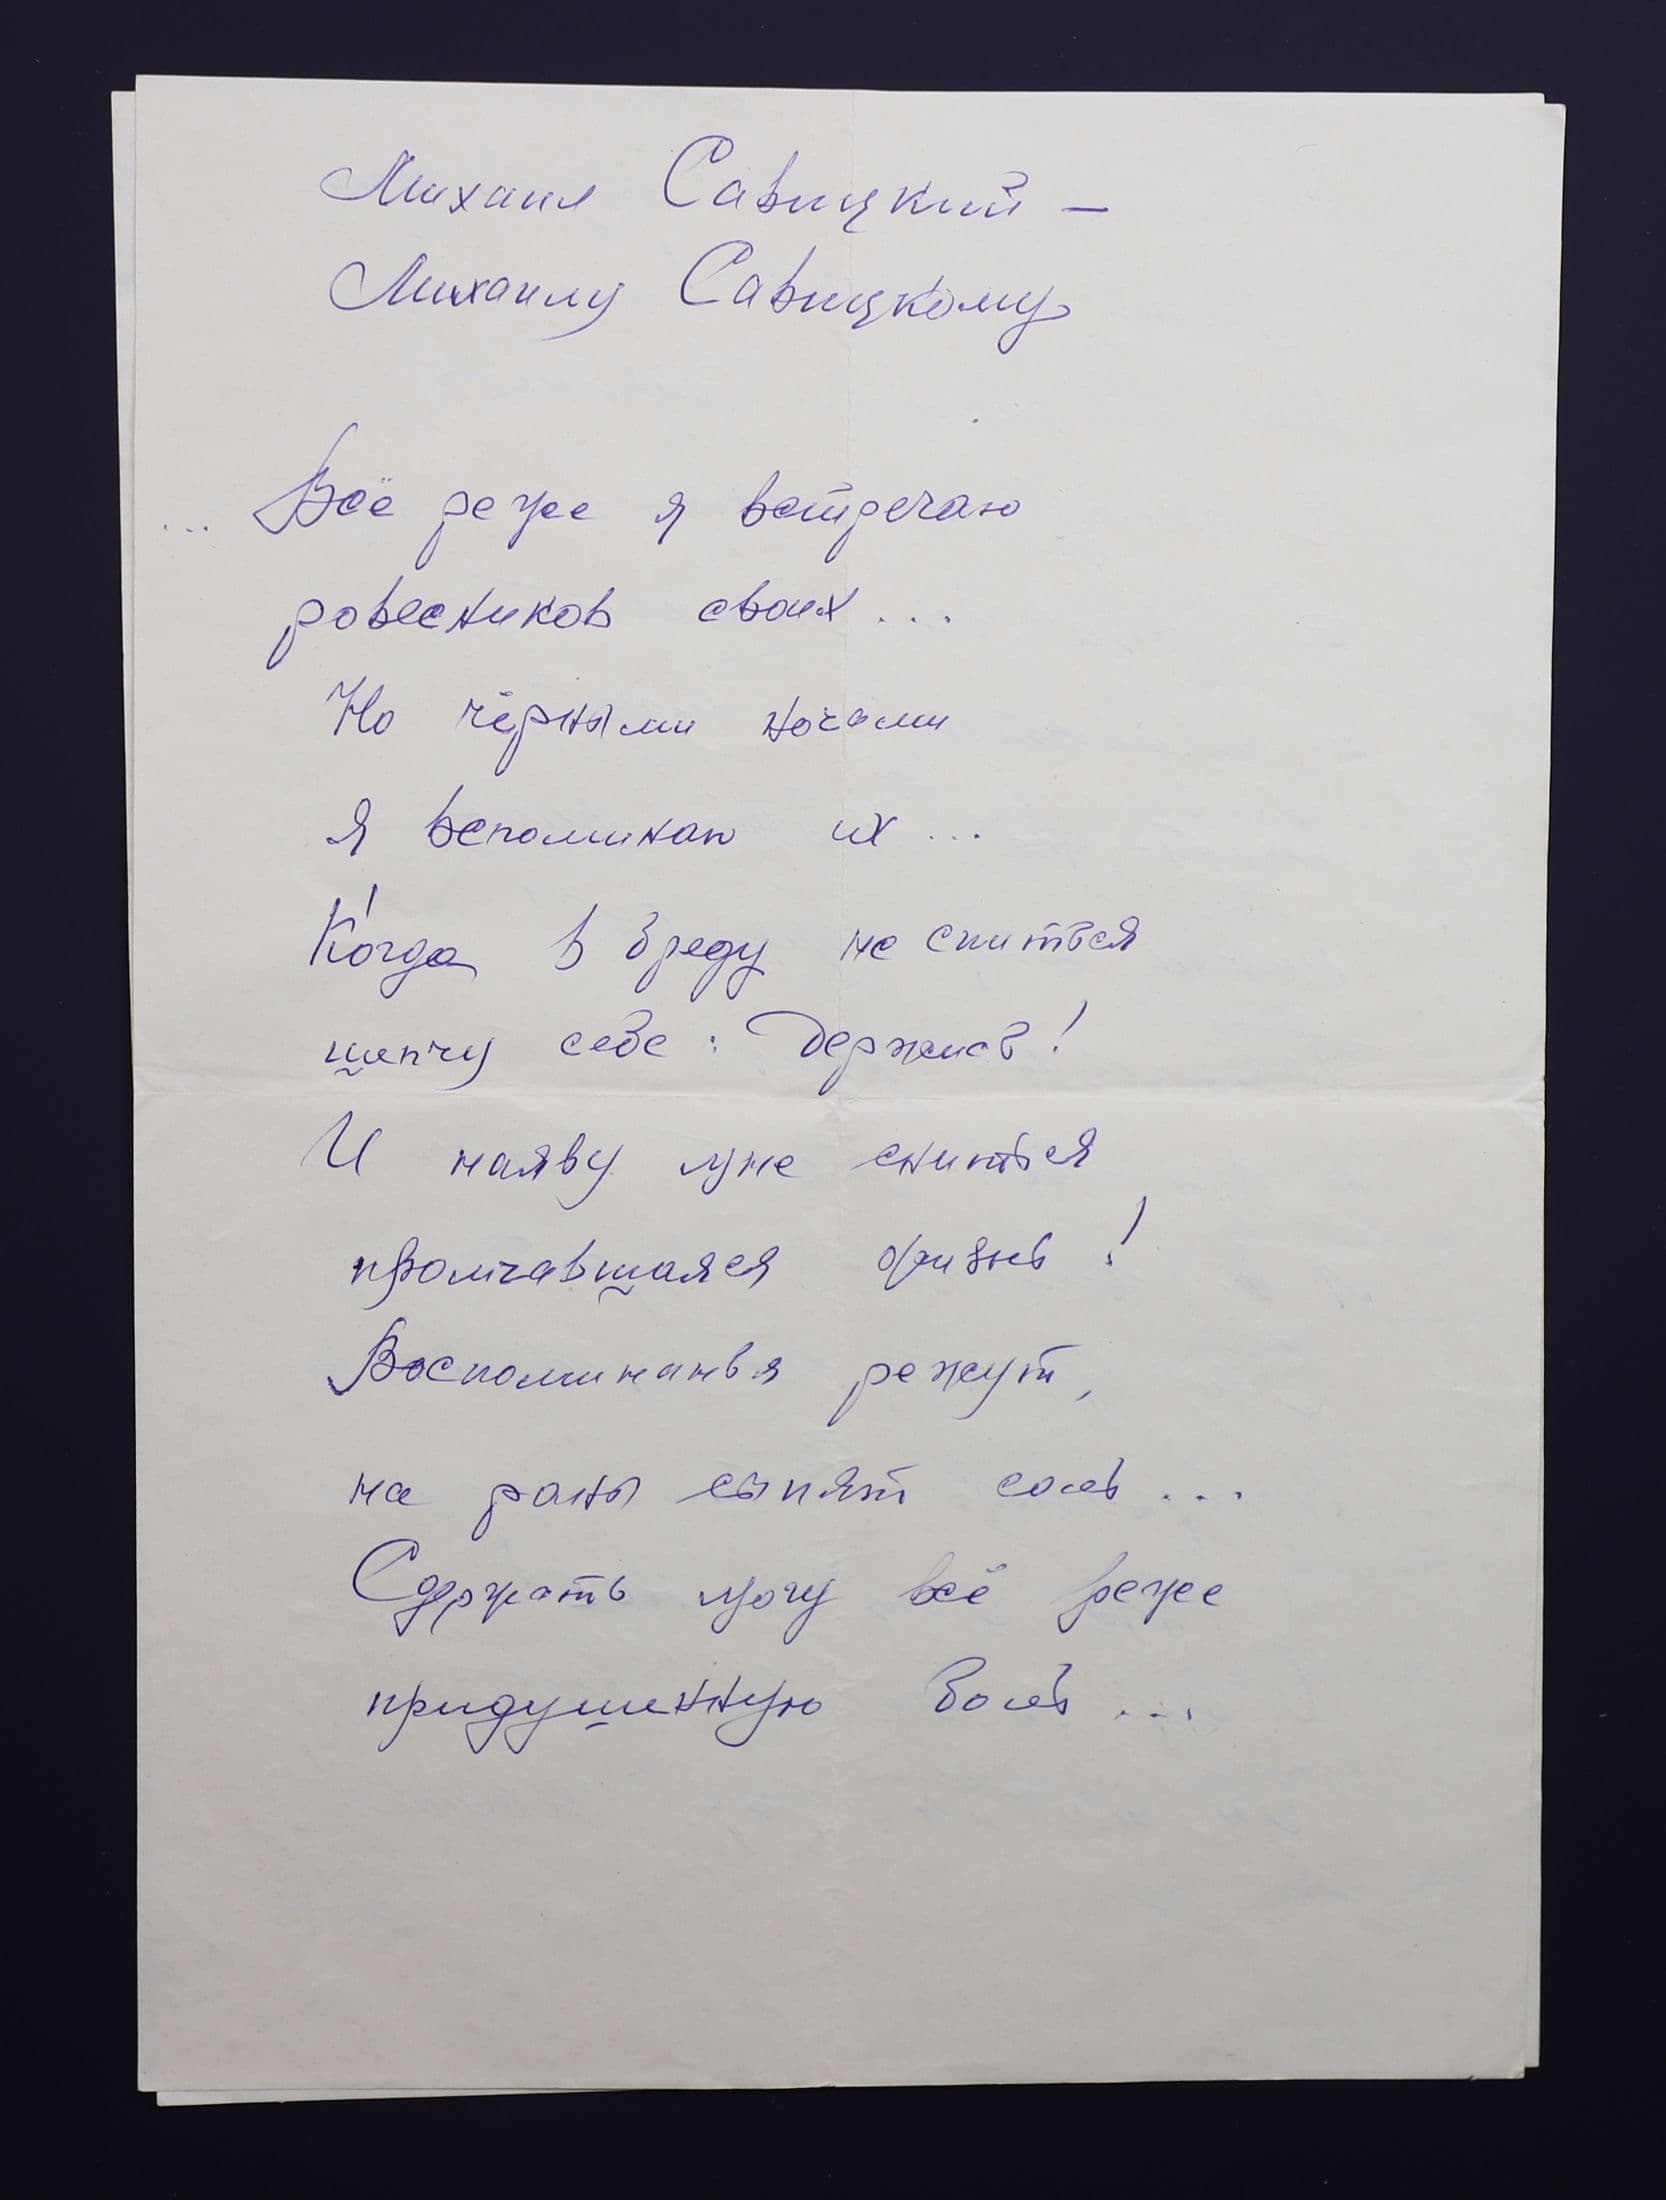 Михаил Савицкий –
Михаилу Савицкому
... Всё реже я встречаю
ровесников своих ...
Но чёрными ночами
я вспоминаю их ...
Когда в бреду не спится
шепчу себе: Держись!
И наяву мне снится
промчавшаяся жизнь!
Воспоминанья режут,
на раны сыпят соль ...
Сдержать могу всё реже
придушенную боль ...